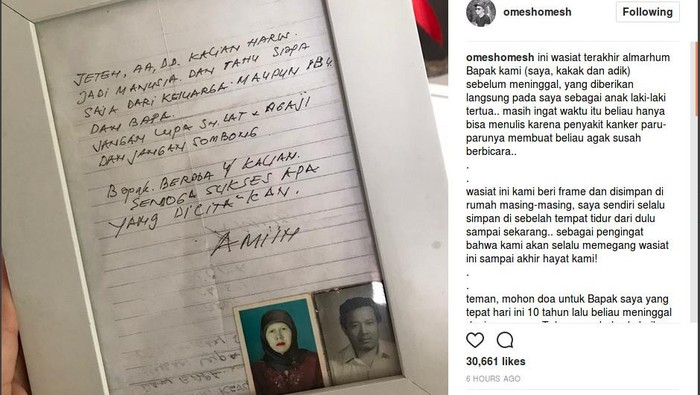 JETEH, AA, DD. KALIAN HARUS
JADI MANUSIA DAN TAHU SIAPA
SAJA DARI KELUARGA MAUPUN IBU
DAN BAPA.
JANGAN LUPA SHLAT & NGAJI
DAN JANGAN SOMBONG.
Bapak BERDOA U/ KALIAN.
SEMOGA SUKSES APA
YANG DICITA²KAN.
AMIIN
omeshomesh
Following
omeshomesh ini wasiat terakhir almarhum
Bapak kami (saya, kakak dan adik)
sebelum meninggal, yang diberikan
langsung pada saya sebagai anak laki-laki
tertua.. masih ingat waktu itu beliau hanya
bisa menulis karena penyakit kanker paru-
parunya membuat beliau agak susah
berbicara..
.
.
wasiat ini kami beri frame dan disimpan di
rumah masing-masing, saya sendiri selalu
simpan di sebelah tempat tidur dari dulu
sampai sekarang.. sebagai pengingat
bahwa kami akan selalu memegang wasiat
ini sampai akhir hayat kami!
.
.
teman, mohon doa untuk Bapak saya yang
tepat hari ini 10 tahun lalu beliau meninggal
30,661 likes
6 HOURS AGO